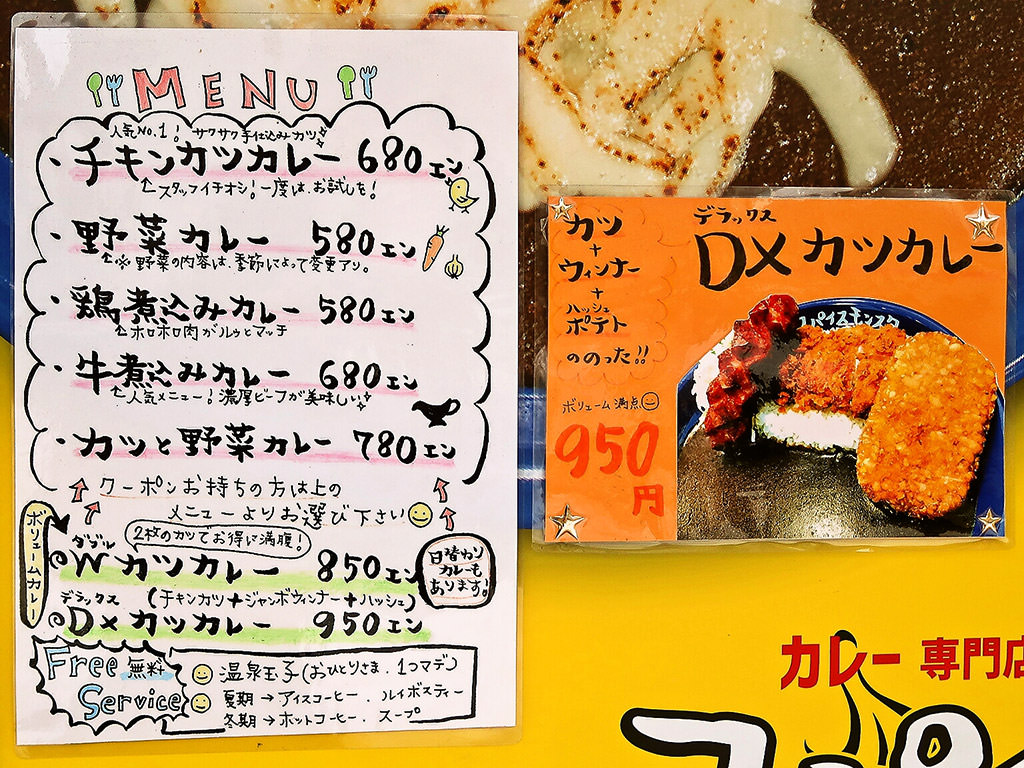 MENU
人気No.1! サクサク手仕込みカツ
・チキンカツカレー 680エン
スタッフイチオシ!一度は、お試しを!
・野菜カレー 580エン
※野菜の内容は、季節によって変更アリ。
・鶏煮込みカレー 580エン
ホロホロ肉がルゥとマッチ
・牛煮込みカレー 680エン
人気メニュー!濃厚ビーフが美味しい
・カツと野菜カレー 780エン
クーポンお持ちの方は上の
メニューよりお選び下さい
ボリュームカレー
2枚のカツでお得に満腹!
ダブル
Wカツカレー 850エン
日替カツ
カレーも
あります!
デラックス (チキンカツ+ジャンボウィンナー+ハッシュ)
DXカツカレー 950エン
Free 無料
Service
温泉玉子(おひとりさま、1つマデ)
夏期→アイスコーヒー、ルイボスティー
冬期→ホットコーヒー、スープ
カツ
+
ウィンナー
+
ハッシュ
ポテト
ののった!!
ボリューム満点
950
円
デラックス
DXカツカレー
カレー専門店